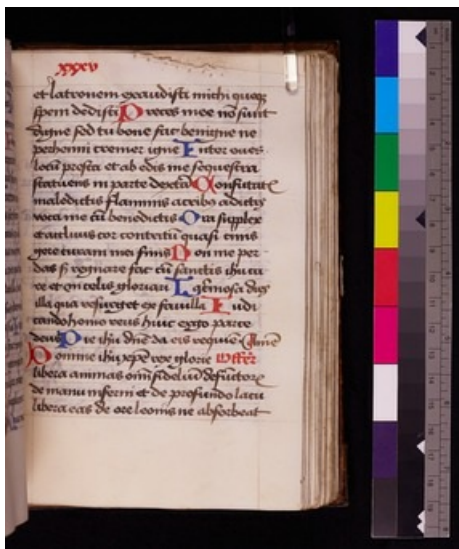 xxxv
et latronem exaudisti michi quoqz
spem dedisti Preces mee nō sunt
digne sed tu bone fac benigne ne
perhenni cremer igne Inter oues
locū presta et ab edis me sequestra
statuens in parte dextra Confutatis
maledictis flammis acribus addictis
voca me cū benedictis Ora supplex
et accliuis cor contritū quasi cinis
gere curam mei finis Don me per
das s; regnare fac cū sanctis ihu
et in celis gloriari Lacrimosa dies
illa qua resurget ex fauilla Iudi
candus homo reus huic ergo parce
deus Pie ihu dn̄e da eis requiē Amē
Domine ihu xpe rex glorie offert
libera animas om̄i fideliū defunctorꝝ
de manu inferni et de profundo lacu
libera eas de ore leonis ne absorbeat